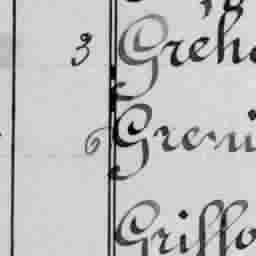 3 Greh
6 Greni
Griffo